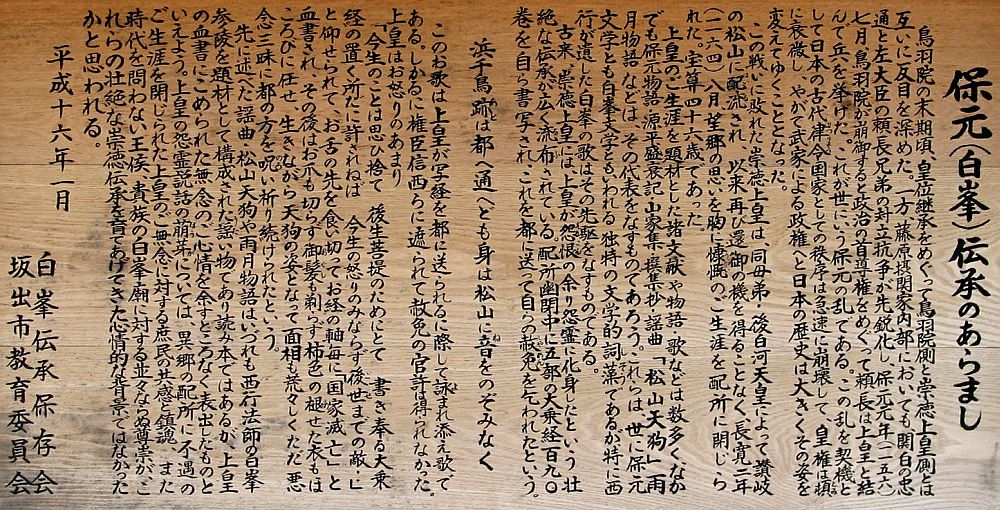 保元(白峯)伝承のあらまし
鳥羽院の末期頃、皇位継承をめぐって鳥羽院側と崇徳上皇側とは
互いに反目を深めた。一方、藤原摂関家内部においても関白の忠
通と左大臣の頼長兄弟の対立抗争が先鋭化し、保元元年(一一五六)
七月鳥羽院が崩御すると政治の首導権をめぐって頼長は上皇と結
んで兵を挙げた。これが世にいう保元の乱である。この乱を契機と
して日本の古代律令国家としての秩序は急速に崩壊して、皇権は頓
に衰微し、やがて武家による政権へと日本の歴史は大きくその姿を
変えてゆくこととなった。
この戦いに敗れた崇徳上皇は、同母弟・後白河天皇によって讃岐
の松山に配流され、以来再び還御の機を得ることなく、長寛二年
(一一六四)八月望郷の思いを胸に慷慨のご生涯を配所に閉じら
れた。宝算四十六歳であった。
上皇のご生涯を題材とした諸文献や物語・歌などは数多く、なか
でも保元物語・源平盛衰記・山家集・撰集抄・謡曲「松山天狗」・雨
月物語などは、その代表をなすものであろう。これらは、世に保元
文学とも白峯文学ともいわれる独特の文学的詞藻であるが、特に西
行が遺した白峯の歌はその先駆をなすものである。
古来、崇徳上皇には、上皇が怨恨の余り怨霊に化身したという壮
絶な伝承が広く流布されている。配所幽閉中に五部の大乗経百九〇
巻を自ら書写され、これを都に送って自らの赦免を乞われたという。
浜千鳥跡は都へ通へども身は松山に音をのぞみなく
このお歌は上皇が写経を都に送られるに際して詠まれ添え歌で
ある。しかるに権臣信西らに遮られて赦免の官許は得られなかった。
上皇はお怒りのあまり
「今生のことは思ひ捨て 後生菩提のためにとて 書き奉る大乗
経の置く所だに許されねば 今生の怒りのみならず後世までの敵に」
と仰せられて、お舌の先を食い切ってお経の軸毎に「国家滅亡」と
血書され、その後はお爪も切らず御髪も剃らず柿色の褪せた衣もほ
ころびに任せ、生きながら天狗の姿となって面相も荒々しくただ悪
念三昧に都の方を呪い祈り続けられたという。
先に述べた謡曲・松山天狗や雨月物語はいづれも西行法師の白峯
参陵を題材として構成された謡い物であり読み本ではあるが、上皇
の血書にこめられた無念のご心情を余すところなく表出したものと
いえよう。上皇の怨霊説話の崩芽については、異郷の配所に不遇の
ご生涯を閉じられた上皇のご無念に対する庶民の共感と鎮魂、また
時代を問わない王侯、貴族の白峯御廟に対する並々ならぬ尊崇が、こ
れらの壮絶な崇徳伝承を育てあげてきた心情的な背景ではなかった
かと思われる。
平成十六年一月
白峯伝承保存会
坂出市教育委員会